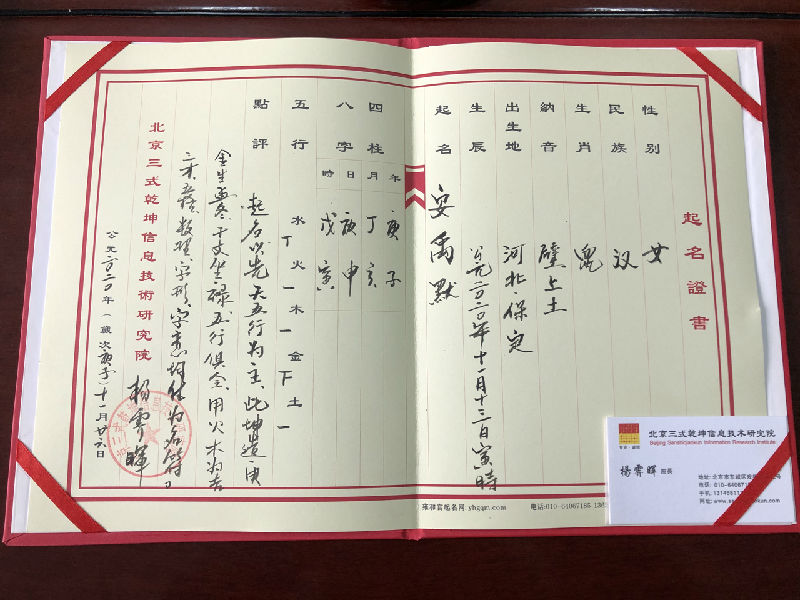 起名證書
性別 女
民族 汉
生肖 鼠
納音 壁上土
出生地 河北·保定
生辰 公元二〇二〇年十一月十三日寅時
起名 安禹默
四柱 年 庚子
月 丁亥
八字 日 庚申
時 戊寅
五行 水丅火一木一金丅土一
點評 起名必先天五行为主、此坤造庚
金生 冬 干支坐禄五行俱全、用火木为吉
数理、字形、字意均佳为名符
北京三式乾坤信息技術研究院 杨霁暉
公元二〇二〇年(歲次庚子)十一月廿六日
雍和宫起名网:yhgqm.com
电话:010-64067185
北京三式乾坤信息技术研究院
Beijing Sanshiqiankun Information Research Institute
杨霁晖 院長
地址:北京市东城区
电话:010-640671
手机:
网址:www.